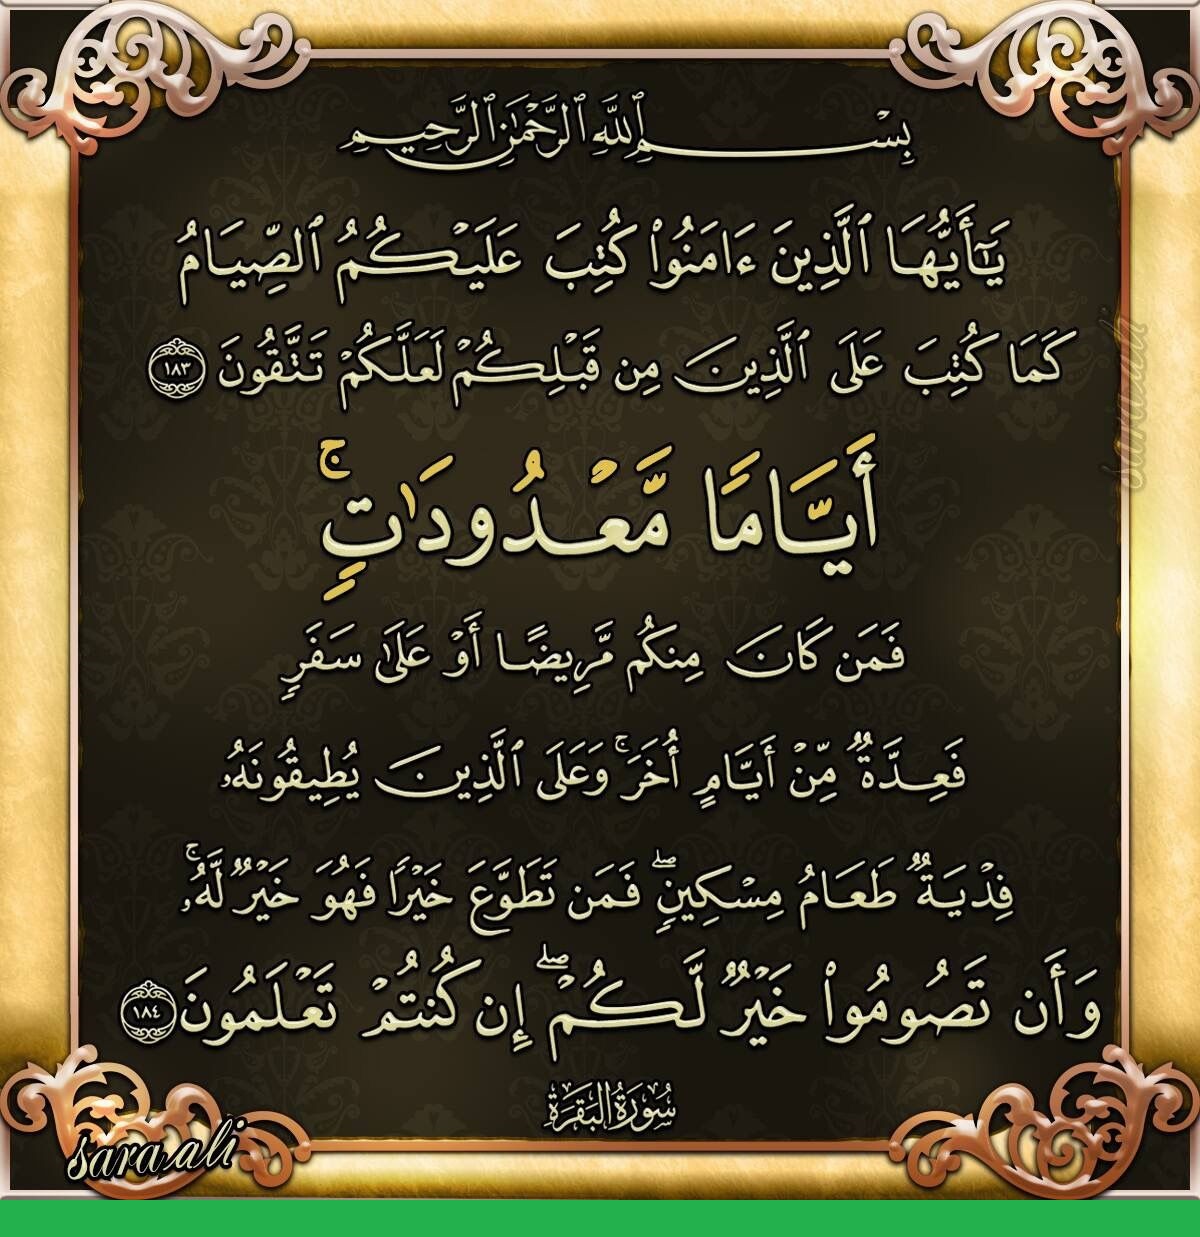 بِسْمِ ٱللَّهِ ٱلرَّحْمَٰنِ ٱلرَّحِيمِ
يَٰٓأَيُّهَا ٱلَّذِينَ ءَامَنُوا۟ كُتِبَ عَلَيْكُمُ ٱلصِّيَامُ
كَمَا كُتِبَ عَلَى ٱلَّذِينَ مِن قَبْلِكُمْ لَعَلَّكُمْ تَتَّقُونَ ١٨٣
أَيَّامًا مَّعْدُودَٰتٍ ۚ
فَمَن كَانَ مِنكُم مَّرِيضًا أَوْ عَلَىٰ سَفَرٍ
فَعِدَّةٌ مِّنْ أَيَّامٍ أُخَرَ ۚ وَعَلَى ٱلَّذِينَ يُطِيقُونَهُۥ
فِدْيَةٌ طَعَامُ مِسْكِينٍ ۖ فَمَن تَطَوَّعَ خَيْرًا فَهُوَ خَيْرٌ لَّهُۥ ۚ
وَأَن تَصُومُوا۟ خَيْرٌ لَّكُمْ ۖ إِن كُنتُمْ تَعْلَمُونَ ١٨٤
سُورَةُ البَقَرَةِ
sara ali
sarazah